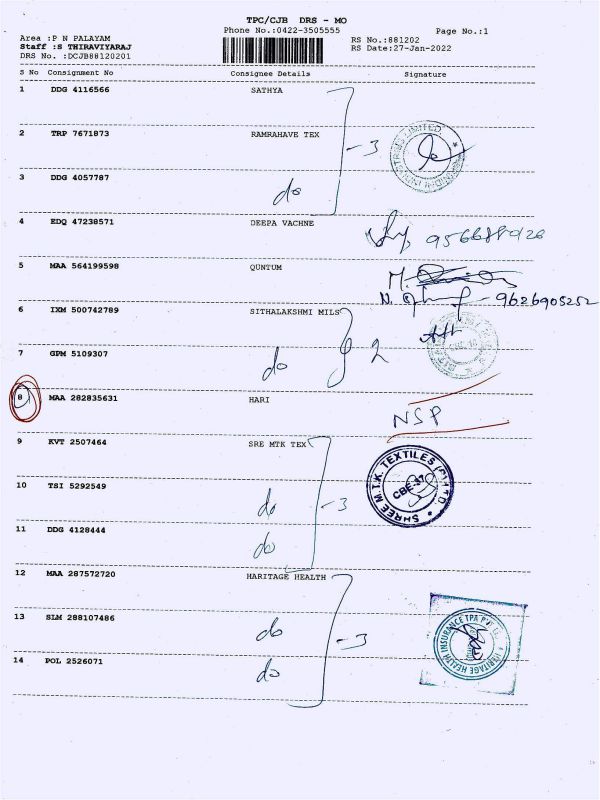 TPC/CJB DRS - MO
Phone No.:0422-3505555 Page No.:1
Area :P N PALAYAM RS No.:881202
Staff :S THIRAVIYARAJ RS Date:27-Jan-2022
DRS No. :DCJB88120201
S No Consignment No Consignee Details Signature
1 DDG 4116566 SATHYA
2 TRP 7671873 RAMRAHAVE TEX - 3
3 DDG 4057787 do
4 EDQ 47238571 DEEPA VACHNE
5 MAA 564199598 QUNTUM
- 9626905252
6 IXM 500742789 SITHALAKSHMI MILS
7 GPM 5109307 do 2
8 MAA 282835631 HARI NSP
9 KVT 2507464 SRE MTK TEX
SHREE M.T.K. TEXTILES (P) LTD.
CBE-37
10 TSI 5292549 do - 3
11 DDG 4128444 do
12 MAA 287572720 HARITAGE HEALTH
HERITAGE HEALTH INSURANCE TPA PVT
13 SLM 288107486 do - 3
14 POL 2526071 do